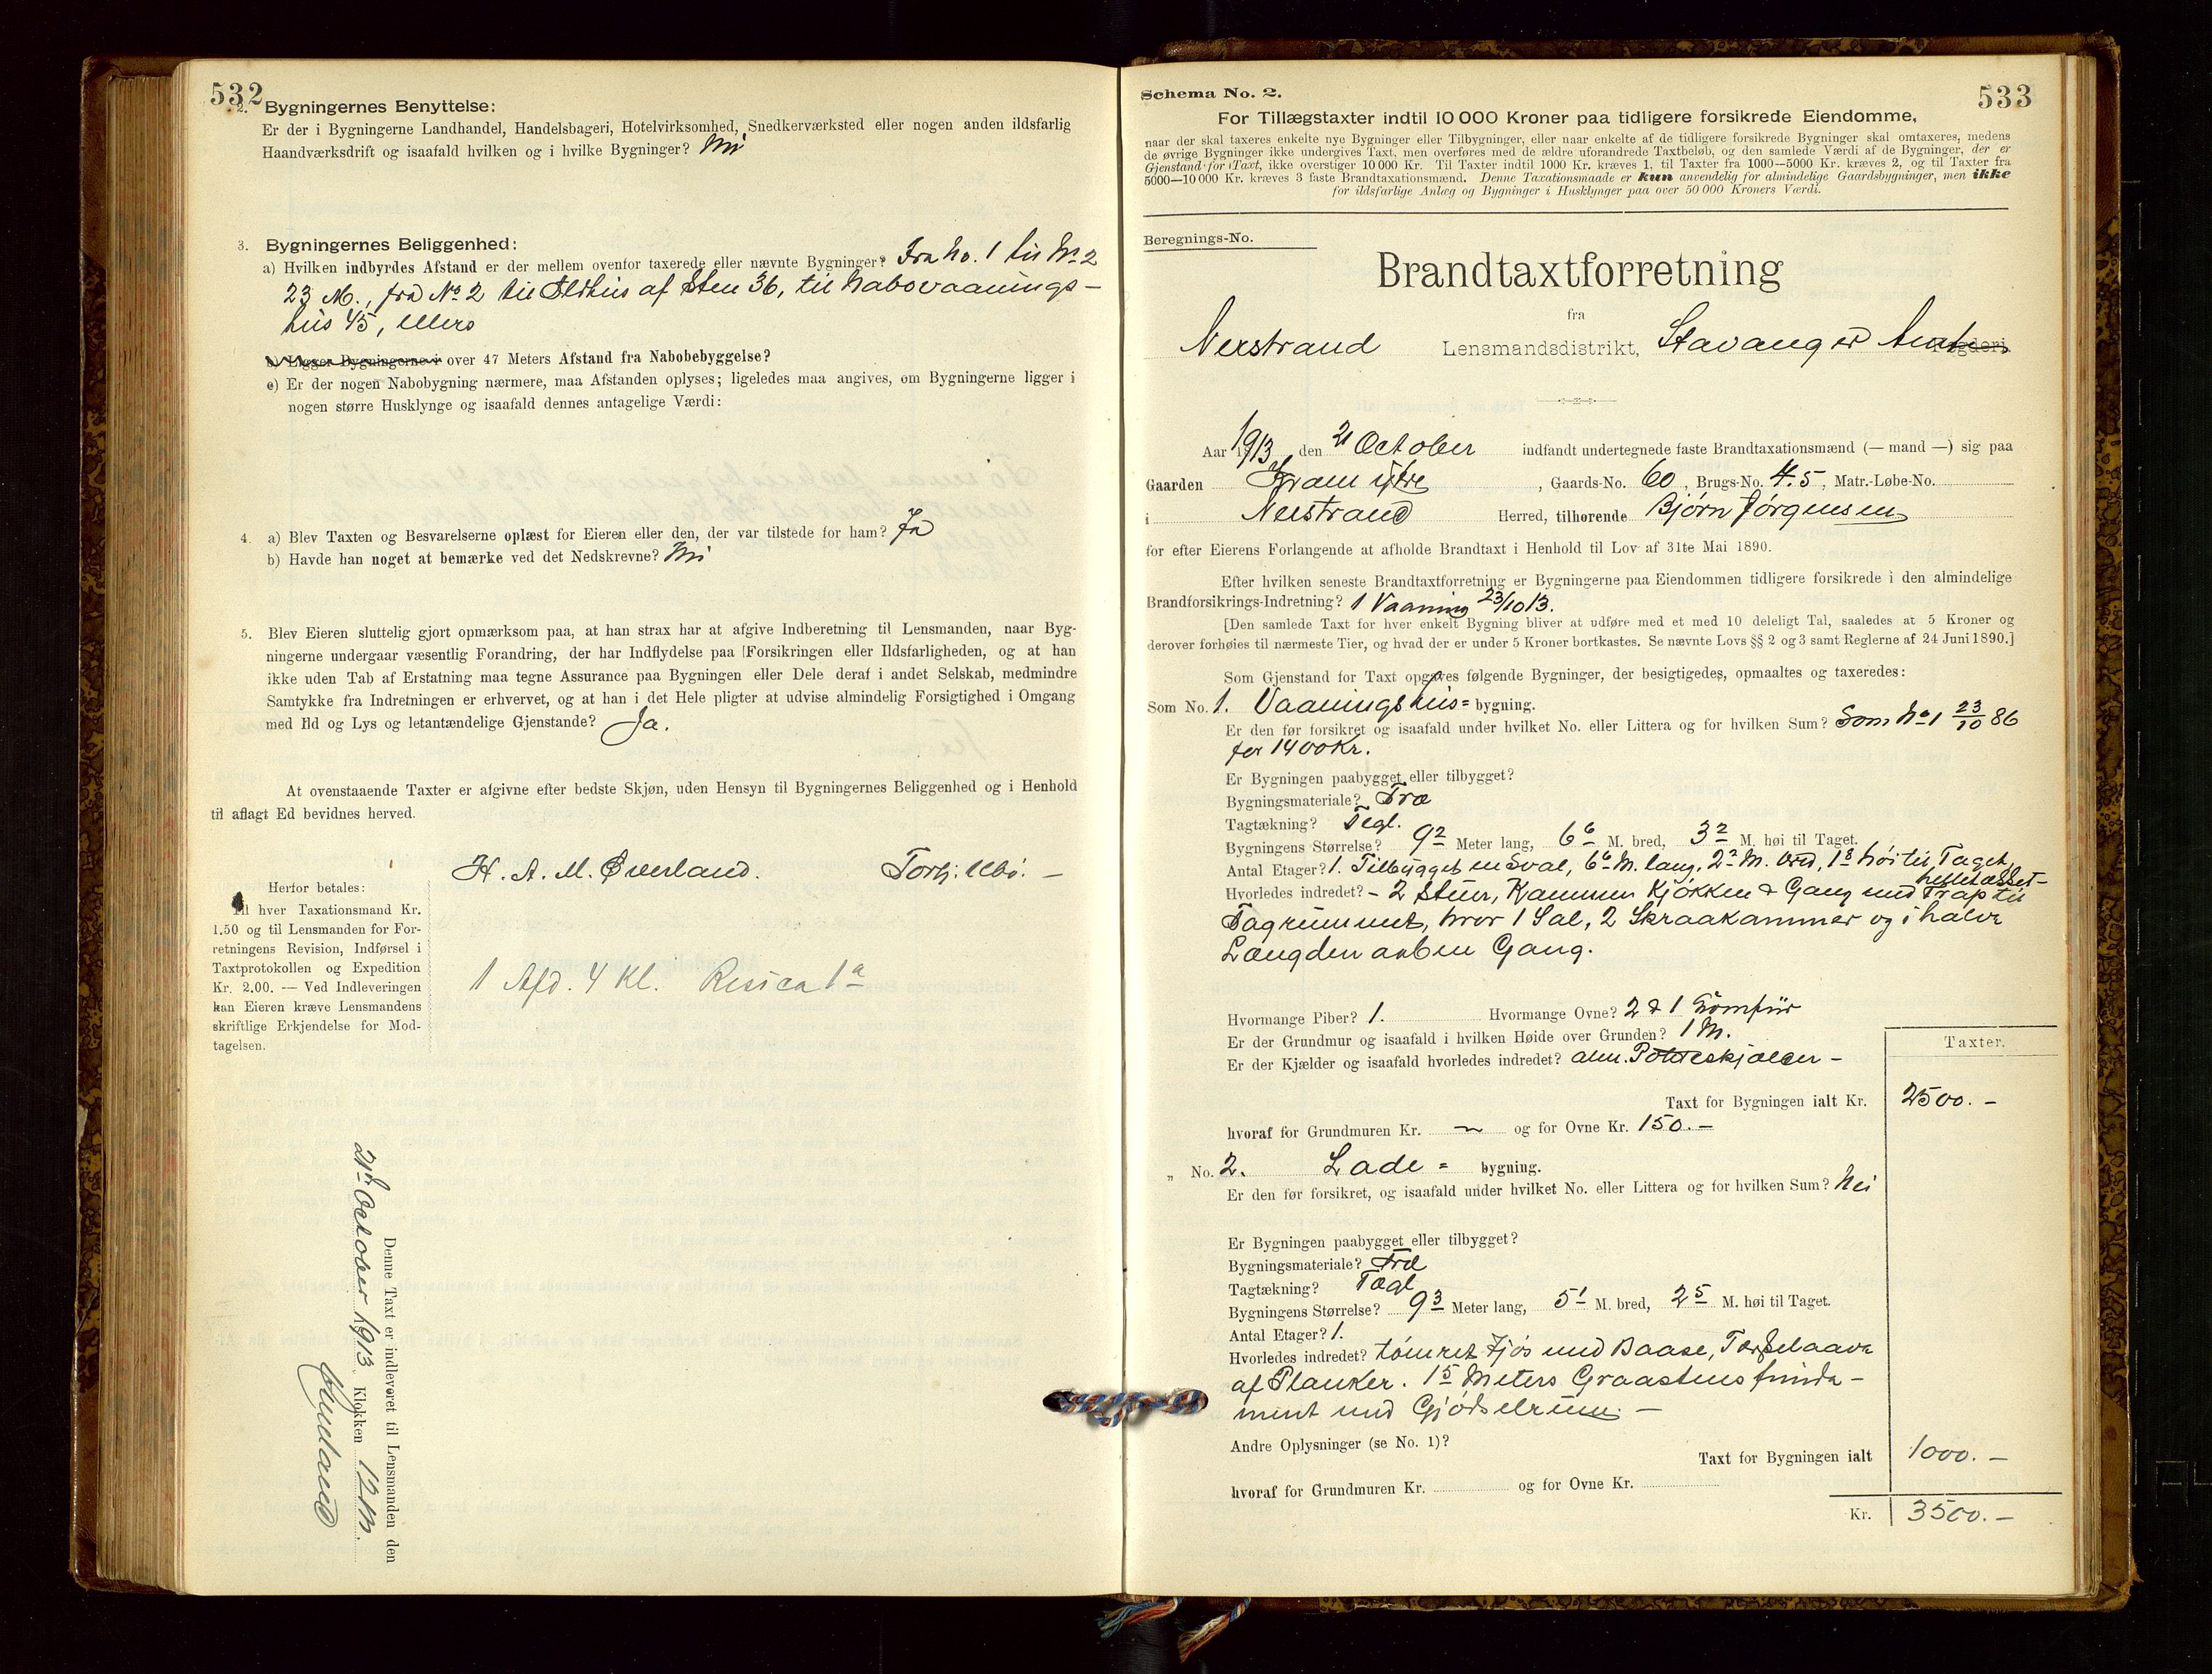 532
2. Bygningernes Benyttelse:
Er der i Bygningerne Landhandel, Handelsbageri, Hotelvirksomhed, Snedkerværksted eller nogen anden ildsfarlig
Haandværksdrift og isaafald hvilken og i hvilke Bygninger? Nei
3. Bygningernes Beliggenhed:
a) Hvilken indbyrdes Afstand er der mellem ovenfor taxerede eller nævnte Bygninger? Fra No. 1 til No 2
23 M., fra No 2 til Ildhus af Sten 36, til Nabovaanings-
hus 45, ellers
b) Ligger Bygningerne i over 47 Meters Afstand fra Nabobebyggelse?
c) Er der nogen Nabobygning nærmere, maa Afstanden oplyses; ligeledes maa angives, om Bygningerne ligger i
nogen større Husklynge og isaafald dennes antagelige Værdi:
4. a) Blev Taxten og Besvarelserne oplæst for Eieren eller den, der var tilstede for ham? Ja
b) Havde han noget at bemærke ved det Nedskrevne? Nei
5. Blev Eieren sluttelig gjort opmærksom paa, at han strax har at afgive Indberetning til Lensmanden, naar Byg-
ningerne undergaar væsentlig Forandring, der har Indflydelse paa Forsikringen eller Ildsfarligheden, og at han
ikke uden Tab af Erstatning maa tegne Assurance paa Bygningen eller Dele deraf i andet Selskab, medmindre
Samtykke fra Indretningen er erhvervet, og at han i det Hele pligter at udvise almindelig Forsigtighed i Omgang
med Ild og Lys og letantændelige Gjenstande? Ja.
At ovenstaaende Taxter er afgivne efter bedste Skjøn, uden Hensyn til Bygningernes Beliggenhed og i Henhold
til aflagt Ed bevidnes herved.
H. A. M. Øverland. Torb: Ulbø. -
Herfor betales:
Til hver Taxationsmand Kr.
1.50 og til Lensmanden for For-
retningens Revision, Indførsel i
Taxtprotokollen og Expedition
Kr. 2.00. — Ved Indleveringen
kan Eieren kræve Lensmandens
skriftlige Erkjendelse for Mod-
tagelsen.
1 Afd. 4 Kl. Resica 1a
Denne Taxt er indleveret til Lensmanden den
21de October 1913 Klokken 12 M.
Schema No. 2.
533
For Tillægstaxter indtil 10 000 Kroner paa tidligere forsikrede Eiendomme,
naar der skal taxeres enkelte nye Bygninger eller Tilbygninger, eller naar enkelte af de tidligere forsikrede Bygninger skal omtaxeres, medens
de øvrige Bygninger ikke undergives Taxt, men overføres med de ældre uforandrede Taxtbeløb, og den samlede Værdi af de Bygninger, der er
Gjenstand for Taxt, ikke overstiger 10 000 Kr. Til Taxter indtil 1000 Kr. kræves 1, til Taxter fra 1000—5000 Kr. kræves 2, og til Taxter fra
5000—10 000 Kr. kræves 3 faste Brandtaxationsmænd. Denne Taxationsmaade er kun anvendelig for almindelige Gaardsbygninger, men ikke
for ildsfarlige Anlæg og Bygninger i Husklynger paa over 50 000 Kroners Værdi.
Beregnings-No.
Brandtaxtforretning
fra
Nerstrand Lensmandsdistrikt, Stavanger Amt Fogderi.
Aar 1913 den 21 October indfandt undertegnede faste Brandtaxationsmænd (— mand —) sig paa
Gaarden Hram ytre, Gaards-No. 60, Brugs-No. 4.5, Matr.-Løbe-No.
i Nerstrand Herred, tilhørende Bjørn Jørgensen
for efter Eierens Forlangende at afholde Brandtaxt i Henhold til Lov af 31te Mai 1890.
Efter hvilken seneste Brandtaxtforretning er Bygningerne paa Eiendommen tidligere forsikrede i den almindelige
Brandforsikrings-Indretning? 1 Vaaning 23/10 13.
[Den samlede Taxt for hver enkelt Bygning bliver at udføre med et med 10 deleligt Tal, saaledes at 5 Kroner og
derover forhøies til nærmeste Tier, og hvad der er under 5 Kroner bortkastes. Se nævnte Lovs §§ 2 og 3 samt Reglerne af 24 Juni 1890.]
Som Gjenstand for Taxt opgaves følgende Bygninger, der besigtigedes, opmaaltes og taxeredes:
Som No. 1. Vaaningshus= bygning.
Er den før forsikret og isaafald under hvilket No. eller Littera og for hvilken Sum? Som No 1 23/10 86
for 1400 Kr.
Er Bygningen paabygget eller tilbygget?
Bygningsmateriale? Træ
Tagtækning? Tegl.
Bygningens Størrelse? 9 2 Meter lang, 6 6 M. bred, 3 2 M. høi til Taget.
Antal Etager? 1. Tilbygget en Sval, 6 6 M. lang, 2 2 M. bred, 1 8 høi til Taget,
helletækket-
Hvorledes indredet? - 2 Stuer, Kammer Kjøkken & Gang med Trap til
Tagrummet, hvor 1 Sal, 2 Skraakammer og i halve
Længden aaben Gang.
Hvormange Piber? 1. Hvormange Ovne? 2 & 1 Komfur
Er der Grundmur og isaafald i hvilken Høide over Grunden? 1 M.
Er der Kjælder og isaafald hvorledes indredet? alm. Poteteskjælder -
Taxter.
Taxt for Bygningen ialt Kr. 2500. -
hvoraf for Grundmuren Kr. ~ og for Ovne Kr. 150. -
„ No. 2. Lade = bygning.
Er den før forsikret, og isaafald under hvilket No. eller Littera og for hvilken Sum? Nei
Er Bygningen paabygget eller tilbygget?
Bygningsmateriale? Træ
Tagtækning? Tægl
Bygningens Størrelse? 9 3 Meter lang, 5 1 M. bred, 2 5 M. høi til Taget.
Antal Etager? 1.
Hvorledes indredet? tømret Fjøs med Baase, Tærskelaave
af Planker. 1 5 Meters Graastens funda-
ment med Gjødselrum. -
Andre Oplysninger (se No. 1)?
Taxt for Bygningen ialt 1000. -
hvoraf for Grundmuren Kr. og for Ovne Kr.
Kr. 3500. -